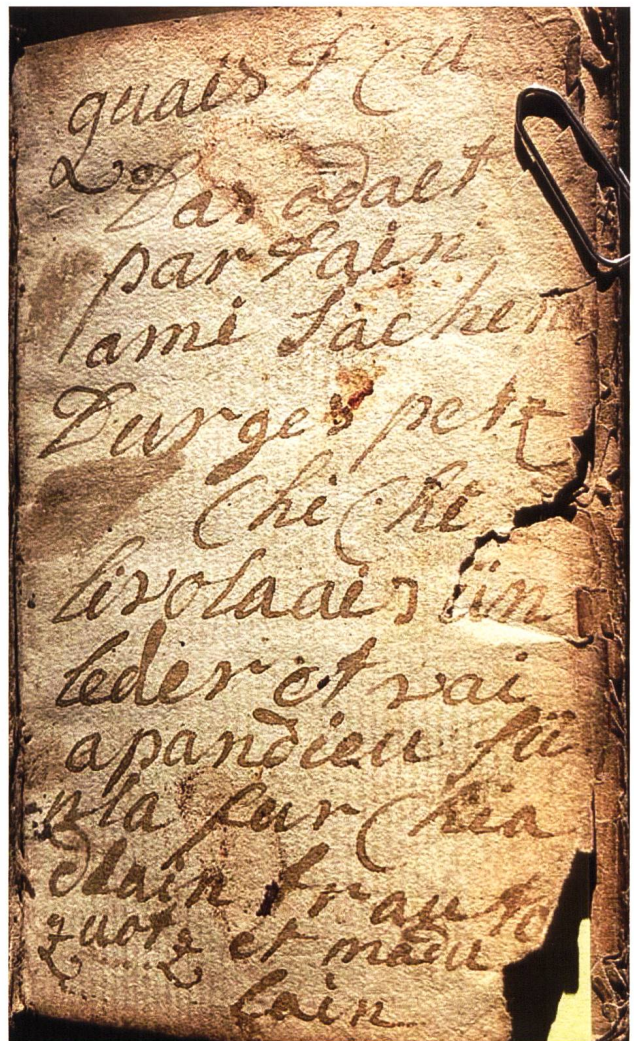 quais f Cu
Das odalt
par fain
ami Sachen
Durges petz
Chi Chi
livolaaies ün
leder et vai
apandieu fü
n la fur Chia
alain trausto
quotz et madu
lain